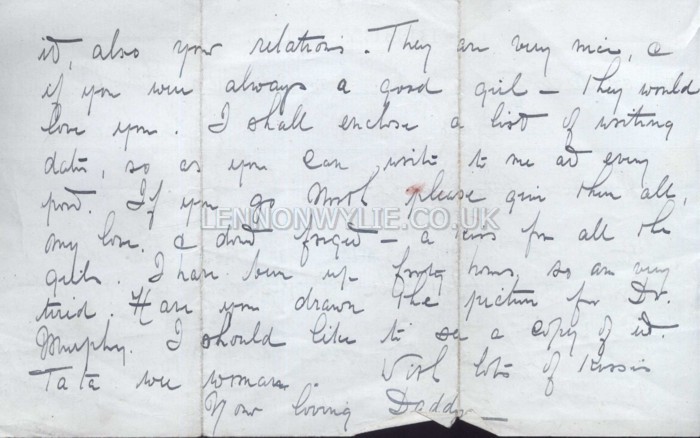 it, also your relations. They are very nice, &
if you were always a good girl - they would
love you. I shall enclose a list of writing
dates, so as you can write to me at every
port. If you go North please give them all,
LENNONWYLIE.CO.UK
my love. & dont forget - a kiss for all the
girls. I have been up forty hours, so am very
tired. Have you drawn the picture for Dr.
Murphy. I should like to see a copy of it.
Ta ta wee woman. With lots of kisses
Your loving Daddy -